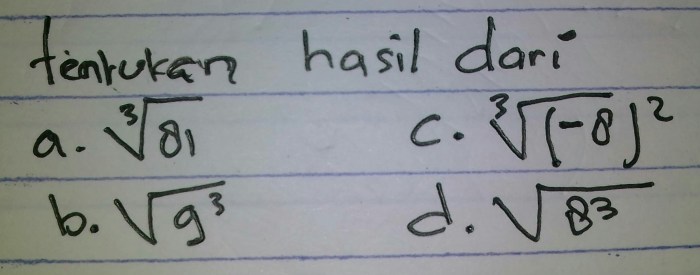 tentukan hasil dari
a. ∛81 c. ∛(-8)²
b. √9³ d. √8³